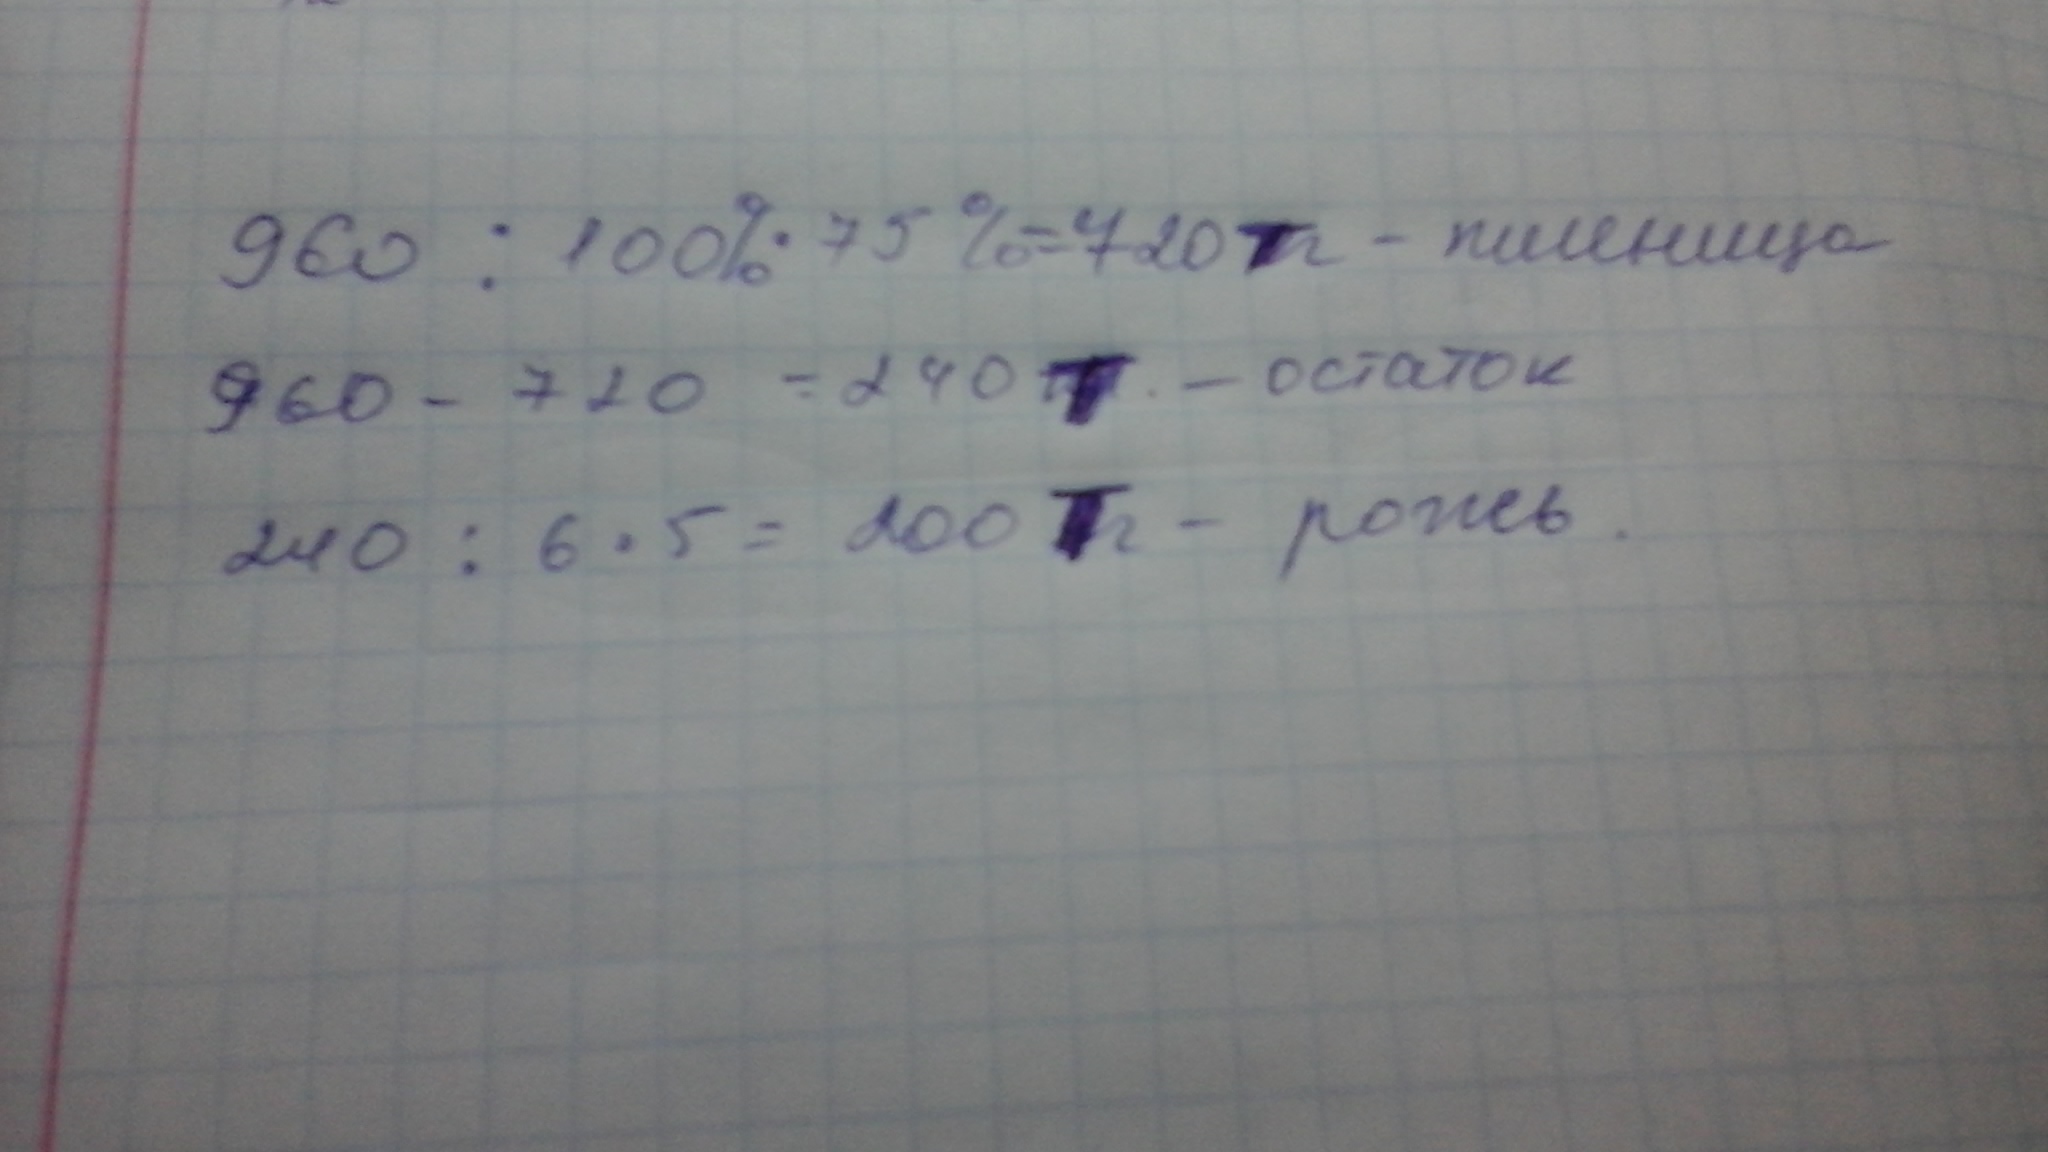 960 : 100% · 75% = 720 т - пшеница
960 - 720 = 240 т. - остаток
240 : 6 · 5 = 200 т - рожь.